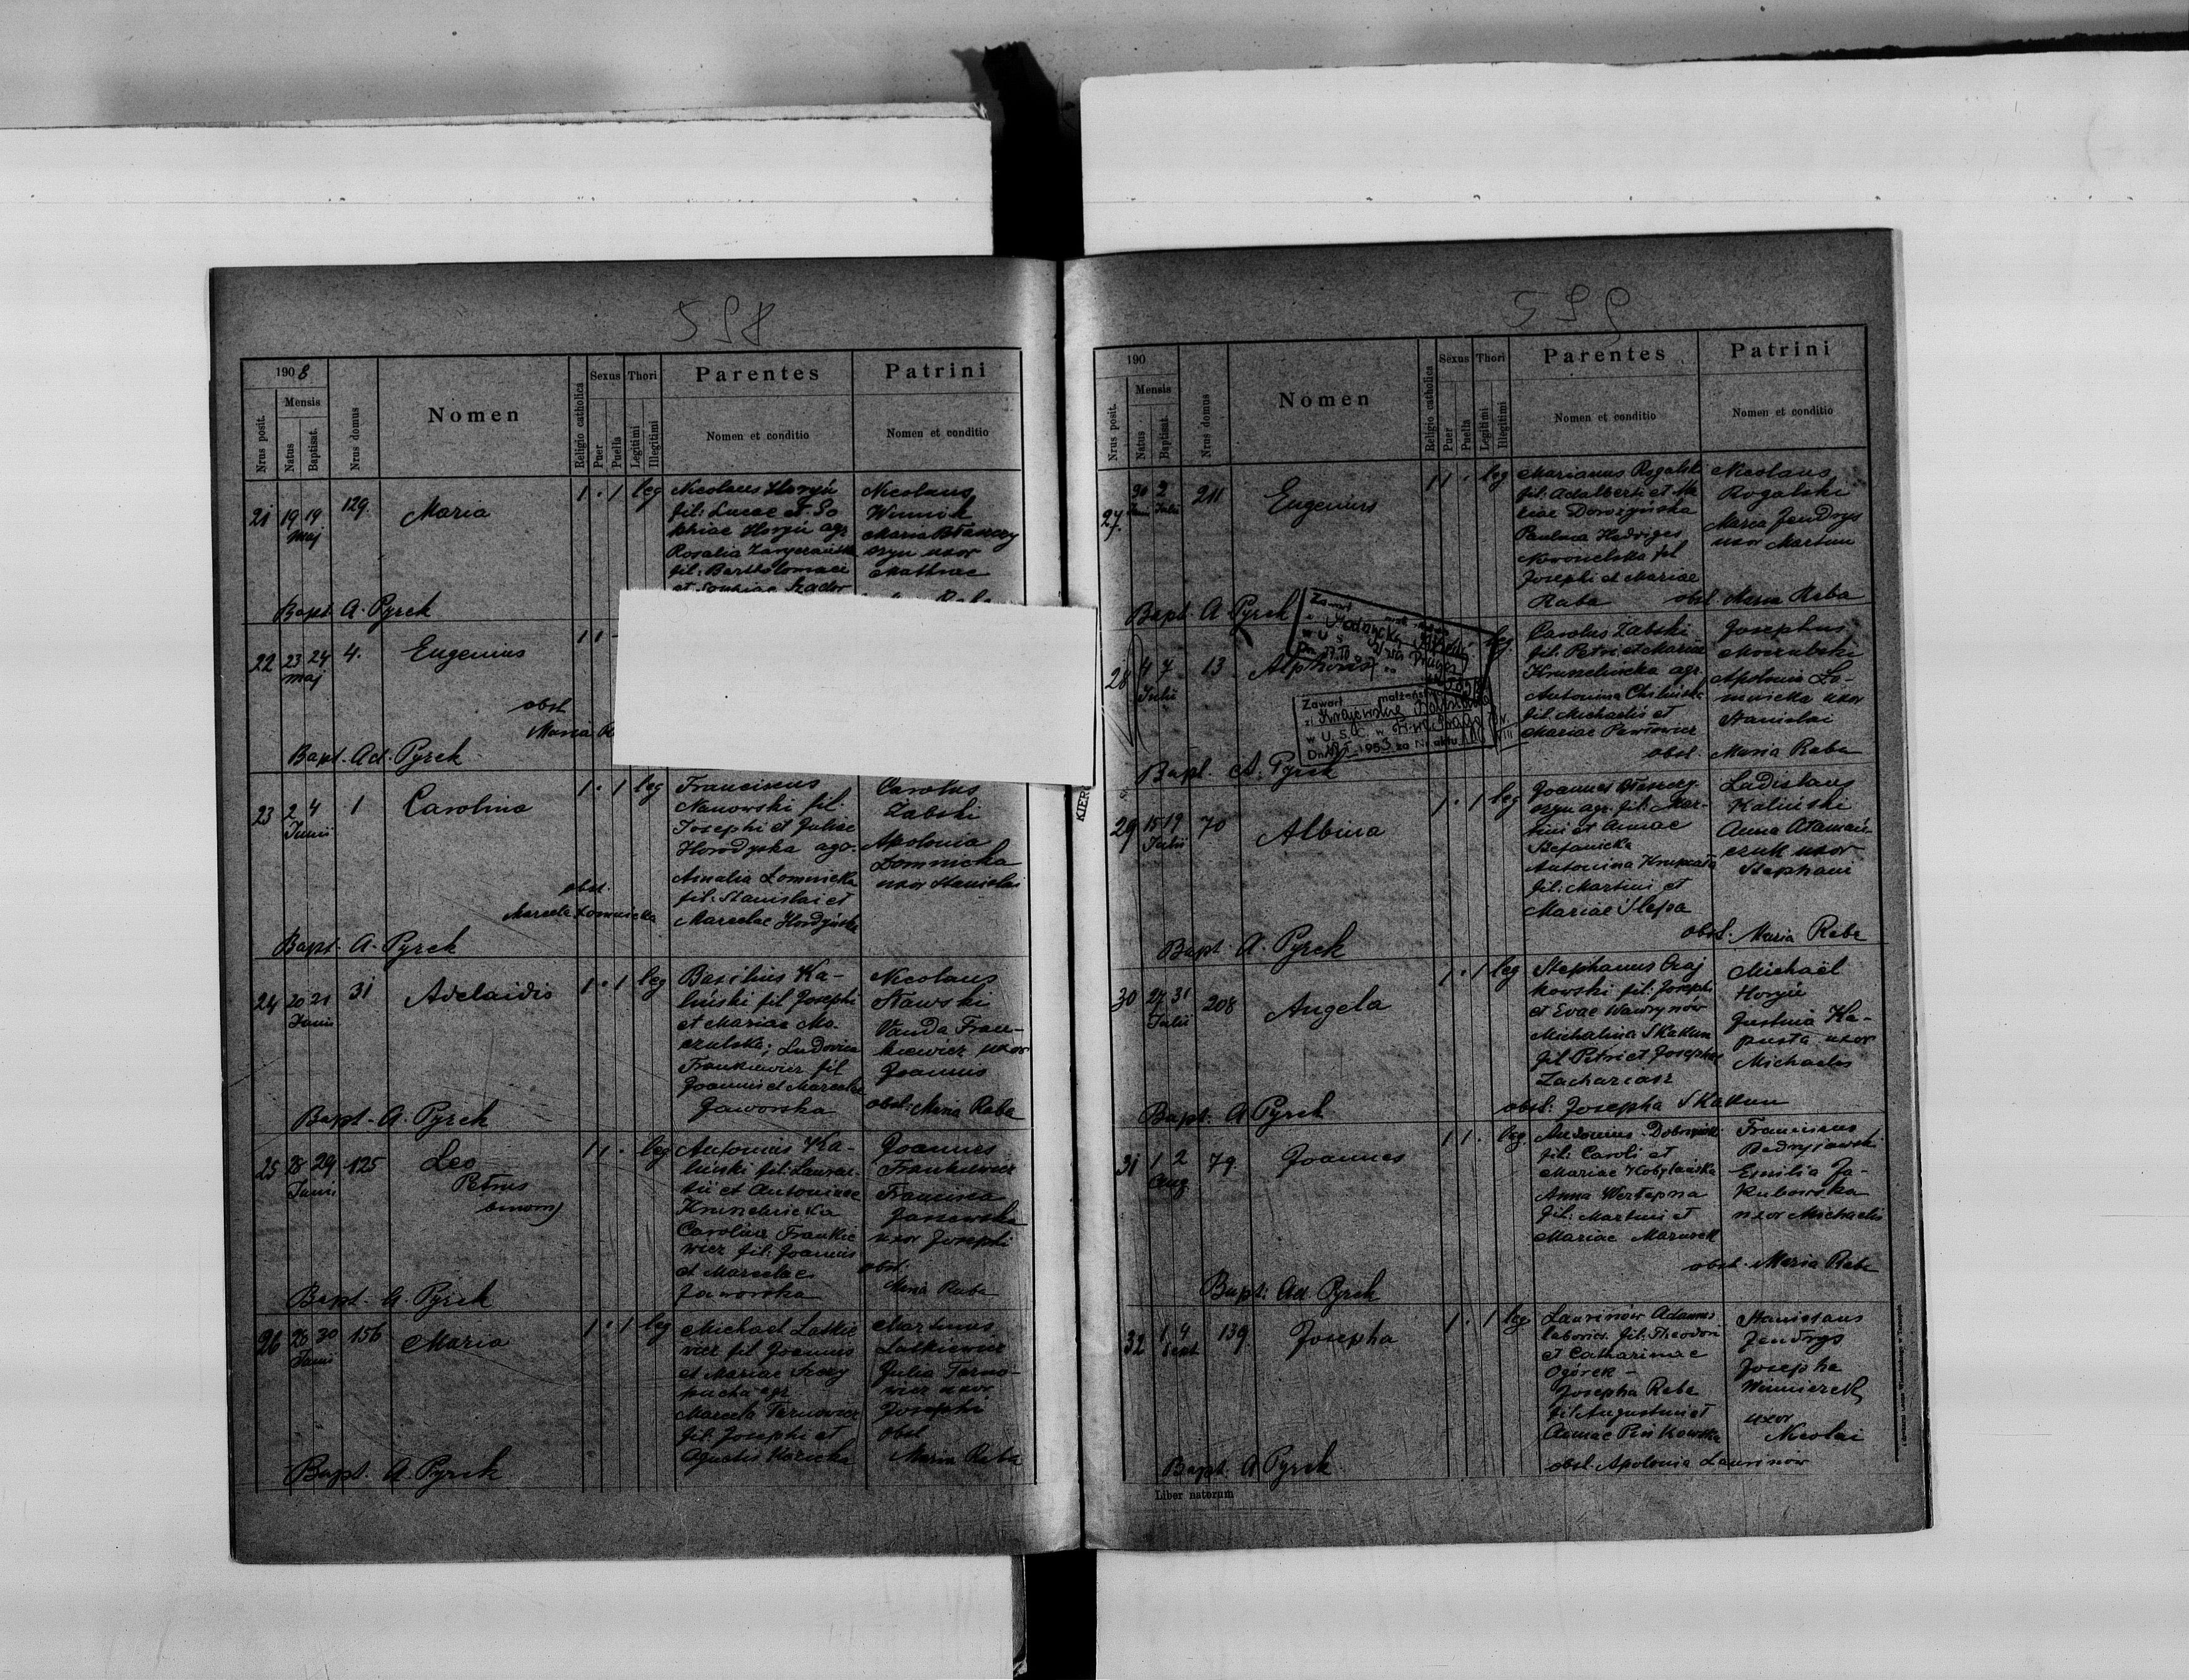 598
1908
Nrus posit.
Mensis
Natus
Baptisat.
Nrus domus
Nomen
Religio catholica
Sexus
Puer
Puella
Thori
Legitimi
Illegitimi
Parentes
Nomen et conditio
Patrini
Nomen et conditio
21 19 19 129 Maria 1 · 1 leg
Maj
Nicolaus Horyń
fil: Lucae et So
phiae Horyń agr
Rosalia
fil: Bartholomaei
et Sophiae
Nicolaus
Winnik
Maria Błaszczy
szyn uxor
Mathiae
Bapt. A. Pyrek
22 23 24 4. Eugenius 1 1
Maj
obst
Maria
Bapt. Ad. Pyrek
23 2 4 1 Carolina 1 · 1 leg
Junii
Franciscus
Nanowski fil:
Josephi et Juliae
Horodyska agr.
Amalia Łomnicka
fil: Stanislai et
Marcelae Hordyńska
Carolus
Żabski
Apolonia
Łomnicka
uxor Stanislai
obst.
Marcela Łomnicka
Bapt. A. Pyrek
24 20 21 31 Adelaidis 1 · 1 leg
Junii
Basilius Ka-
liński fil Josephi
et Mariae Mo-
czulska; Ludovica
Frankiewicz fil
Joannis et Marcelae
Jaworska
Nicolaus
Sławski
Vanda Fran-
kiewicz uxor
Joannis
obst: Maria Raba
Bapt. A. Pyrek
25 28 29 125 Leo 1 1 · leg
Junii
Petrus
binom)
Antonius Ka-
liński fil: Lauren-
tii et Antoninae
Kruszelnicka
Carolina Frankie
wicz fil: Joannis
et Marcelae
Jaworska
Joannes
Frankiewicz
Francisca
Jaszewska
uxor Josephi
obst.
Maria Raba
Bapt. A. Pyrek
26 28 30 156 Maria 1 · 1 leg
Junii
Michael Latkie
wicz fil Joannis
et Mariae Szczy
pucha agr.
Marcela Tarnowicz
fil: Josephi et
Agnetis
Martinus
Latkiewicz
Julia Tarno-
wicz uxor
Josephi
obst
Maria Raba
Bapt. A. Pyrek
599
190
Nrus posit.
Mensis
Natus
Baptisat.
Nrus domus
Nomen
Religio catholica
Sexus
Puer
Puella
Thori
Legitimi
Illegitimi
Parentes
Nomen et conditio
Patrini
Nomen et conditio
27. 30 2 211 Eugenius 1 1 · leg
Junii Julii
Marianus Rogalski
fil: Adalberti et Ma
riae Dorożyńska
Paulina Hedviges
Nowosielska fil
Josephi et Mariae
Raba
Nicolaus
Rogalski
Maria Jendrys
uxor Martini
obst. Maria Raba
Bapt. A. Pyrek
28 4 7 13 Alphons leg.
Julii
Zawarł
w U. S.
Zawarł małżeństwo
w U. S. C. w
Dn. 1953 za Nr aktu
Carolus Żabski
fil. Petri et Mariae
Kruszelnicka agr
Antonina
fil. Michaelis et
Mariae Pawłowicz
Josephus
Moczulski
Apolonia Ło-
mnicka uxor
Stanislai
obst. Maria Raba
Bapt. A. Pyrek
29 15 19 70 Albina 1 · 1 leg
Julii
Joannes Błaszczy-
szyn agr. fil: Mar-
tini et Annae
Stefanicka
Antonina
fil: Martini et
Mariae Ślepa
Ladislaus
Kaliński
Anna Ataman-
czuk uxor
Stephani
obst. Maria Raba
Bapt. A. Pyrek
30 27 31 208 Angela 1 · 1 leg
Julii
Stephanus Czaj
kowski fil: Josephi
et Evae Wawrynów
Michalina Skakun
fil Petri et Josephae
Zachariasz
Michaël
Horyń
Justina Ka-
pusta uxor
Michaelis
obst: Josepha Skakun
Bapt. A Pyrek
31 1 2 79. Joannes 1 1 · leg.
Aug
Antonius
fil: Caroli et
Mariae Kobylańska
Anna Wertepna
fil: Martini et
Mariae Mazurek
Franciscus
Emilia Ja-
kubowska
uxor Michaelis
obst. Maria Raba
Bapt: Ad. Pyrek
32 1 4 139. Josepha 1 · 1 leg
Sept
Laurinów Adamus
laborior. fil: Theodori
et Catharinae
Ogórek -
Josepha Raba
fil Augustini et
Annae
Stanislaus
Jendrys
Josepha
uxor
Nicolai
obst. Apolonia Laurinów
Bapt. A Pyrek
Liber natorum